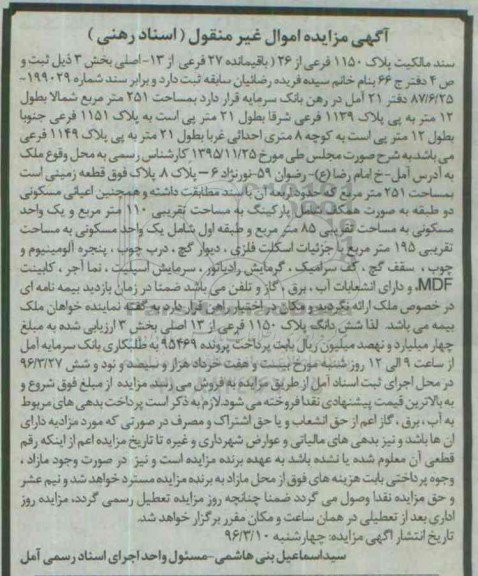 آگهی مزایده اموال غیر منقول ( اسناد رهنی )
سند مالکیت پلاک ۱۱۵۰ فرعی از ۲۶ ( باقیمانده ۲۷ فرعی از ۱۳- اصلی بخش ۳ ذیل ثبت و
ص ۴ دفتر ج ۶۶ بنام خانم سیده فریده رضائیان سابقه ثبت دارد و برابر سند شماره ۱۹۹۰۲۹-
۸۷/۶/۲۵ دفتر ۲۱ آمل در رهن بانک سرمایه قرار دارد بمساحت ۲۵۱ متر مربع شمالا بطول
۱۲ متر به پی پلاک ۱۱۳۹ فرعی شرقا بطول ۲۱ متر پی است به پلاک ۱۱۵۱ فرعی جنوبا
بطول ۱۲ متر پی است به کوچه ۸ متری احداثی غربا بطول ۲۱ متر به پی پلاک ۱۱۴۹ فرعی
می باشد به شرح صورت مجلس طی مورخ ۱۳۹۵/۱۱/۲۵ کارشناس رسمی به محل وقوع ملک
به آدرس آمل-خ امام رضا (ع)- رضوان ۵۹-نورنژاد ۶ – پلاک ۸ پلاک فوق قطعه زمینی است
بمساحت ۲۵۱ متر مربع که حدود اربعه آن با سند مطابقت داشته و همچنین اعیانی مسکونی
دو طبقه به صورت همکف شامل پارکینگ به مساحت تقریبی ۱۱۰ متر مربع و یک واحد
مسکونی به مساحت تقریبی ۸۵ متر مربع و طبقه اول شامل یک واحد مسکونی به مساحت
تقریبی ۱۹۵ متر مربع با جزئیات اسکلت فلزی ، دیوار گچ ، درب چوب ، پنجره آلومینیوم و
چوب ، سقف گچ ، کف سرامیک ، گرمایش رادیاتور ، سرمایش اسپلیت ، نما آجر ، کابینت
MDF، و دارای انشعابات آب ، برق ، گاز و تلفن می باشد ضمنا در زمان بازدید بیمه نامه ای
در خصوص ملک ارائه نگردید و مکان در اختیار راهن قرار دارد به گفته نماینده خواهان ملک
بیمه می باشد. لذا شش دانگ پلاک ۱۱۵۰ فرعی از ۱۳ اصلی بخش ۳ ارزیابی شده به مبلغ
چهار میلیارد و نهصد میلیون ریال بابت پرداخت پرونده ۹۵۴۶۹ به طلبکاری بانک سرمایه آمل
از ساعت ۹ الی ۱۲ روز شنبه مورخ بیست و هفت خرداد هزار و سیصد و نود و شش ۹۶/۳/۲۷
در محل اجرای ثبت اسناد آمل از طریق مزایده به فروش می رسد. مزایده از مبلغ فوق شروع و
به بالاترین قیمت پیشنهادی نقدا فروخته می شود.لازم به ذکر است پرداخت بدهی های مربوط
به آب ، برق ، گاز اعم از حق انشعاب و یا حق اشتراک و مصرف در صورتی که مورد مزادیه دارای
آن ها باشد و نیز بدهی های مالیاتی و عوارض شهرداری و غیره تا تاریخ مزایده اعم از اینکه رقم
قطعی آن معلوم شده یا نشده باشد به عهده برنده مزایده است و نیز در صورت وجود مازاد ،
وجوه پرداختی بابت هزینه های فوق از محل مازاد به برنده مزایده مسترد خواهد شد و نیم عشر
و حق مزایده نقدا وصول می گردد ضمنا چنانچه روز مزایده تعطیل رسمی گردد، مزایده روز
اداری بعد از تعطیلی در همان ساعت و مکان مقرر برگزار خواهد شد.
تاریخ انتشار آگهی مزایده: چهارشنبه ۹۶/۳/۱۰
سیداسماعیل بنی هاشمی-مسئول واحد اجرای اسناد رسمی آمل